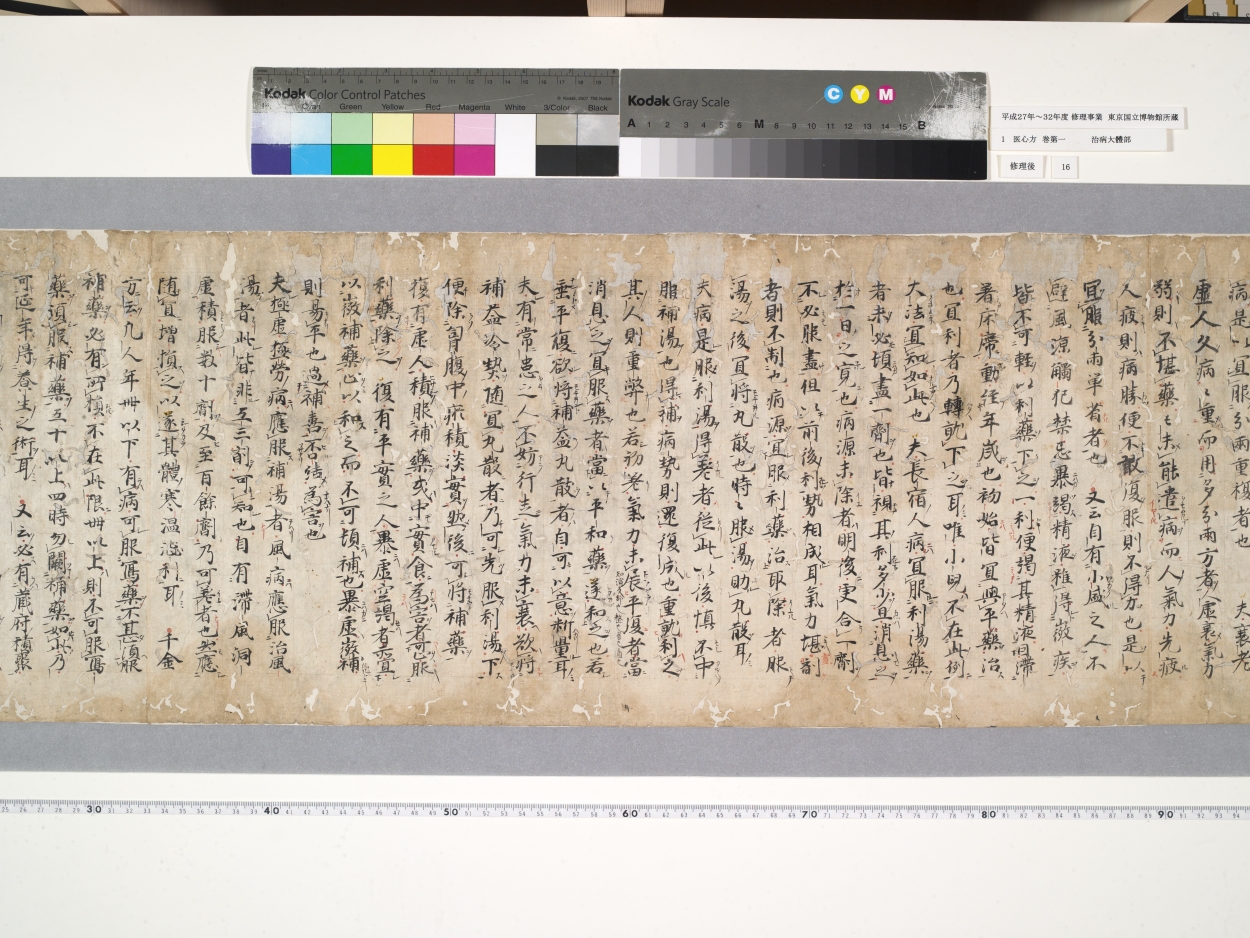 Kodak Color Control Patches
Green Yellow Red Magenta White 3/Color Black
Kodak Gray Scale
C Y M
A 1 2 3 4 5 6 M 8 9 10 11 12 13 14 15 B
平成27年~32年度 修理事業 東京国立博物館所蔵
1 医心方 巻第一 治病大體部
修理後 16
病是以宜服分兩重複者也 夫衰老
虛人久病病重而用多分兩方者人虛衰氣力
弱則不堪藥藥未能遣病而人氣力先疲
人疲則病勝便不敢復服則不得力也是以
宜服分兩單省者也 又云自有小風之人不
避風涼觸犯禁忌暴竭精液雖得微疾
皆不可輕以利藥下之一利便竭其精液困滯
著床席動經年歲也初始皆宜與平藥治
也宜利者乃轉就下之耳唯小兒不在此例
大法宜知如此也 夫長宿人病宜服利湯藥
者未必須盡一劑也皆視其利多少且消息之
於一日之寬也病源未除者明後更合一劑
不必服盡但以前後利勢相成耳氣力堪劇
者則不制也病源宜服利藥治取除者服
湯之後宜將丸散也時時服湯助丸散耳
夫病是服利湯得差者從此以後慎不中
服補湯也得補病勢則還復成也重動利之
其人則重弊也若初差氣力未展平復者當
消息之宜服藥者當以平和藥逐和之也若
垂平復欲將補益丸散者自可以意斷量耳
夫有常患之人不妨行走氣力未衰欲將
補益冷熱隨宜丸散者乃可先服利湯下
便除胷腹中瘀積淡實然後可將補藥
復有虛人積服補藥或中實食爲害者可服
利藥除之 復有平實之人暴虛空竭者宜
以微補藥止以和之而不可頓補也暴虛微補
則易平也過補喜否結爲害也
夫極虛極勞病應服補湯者風病應服治風
湯者此皆非五三劑可知也自有滯風洞
虛積服數十劑及至百餘劑乃可差者也然應
隨宜增損之以逐其體寒溫澁利耳 千金
方云凡人年卌以下有病可服寫藥不甚須服
補藥必有所損不在此限卌以上則不可服寫
藥須服補藥五十以上四時勿闕補藥如此乃
可延年得養生之術耳 又云必有藏府積聚
30 40 50 60 70 80 90